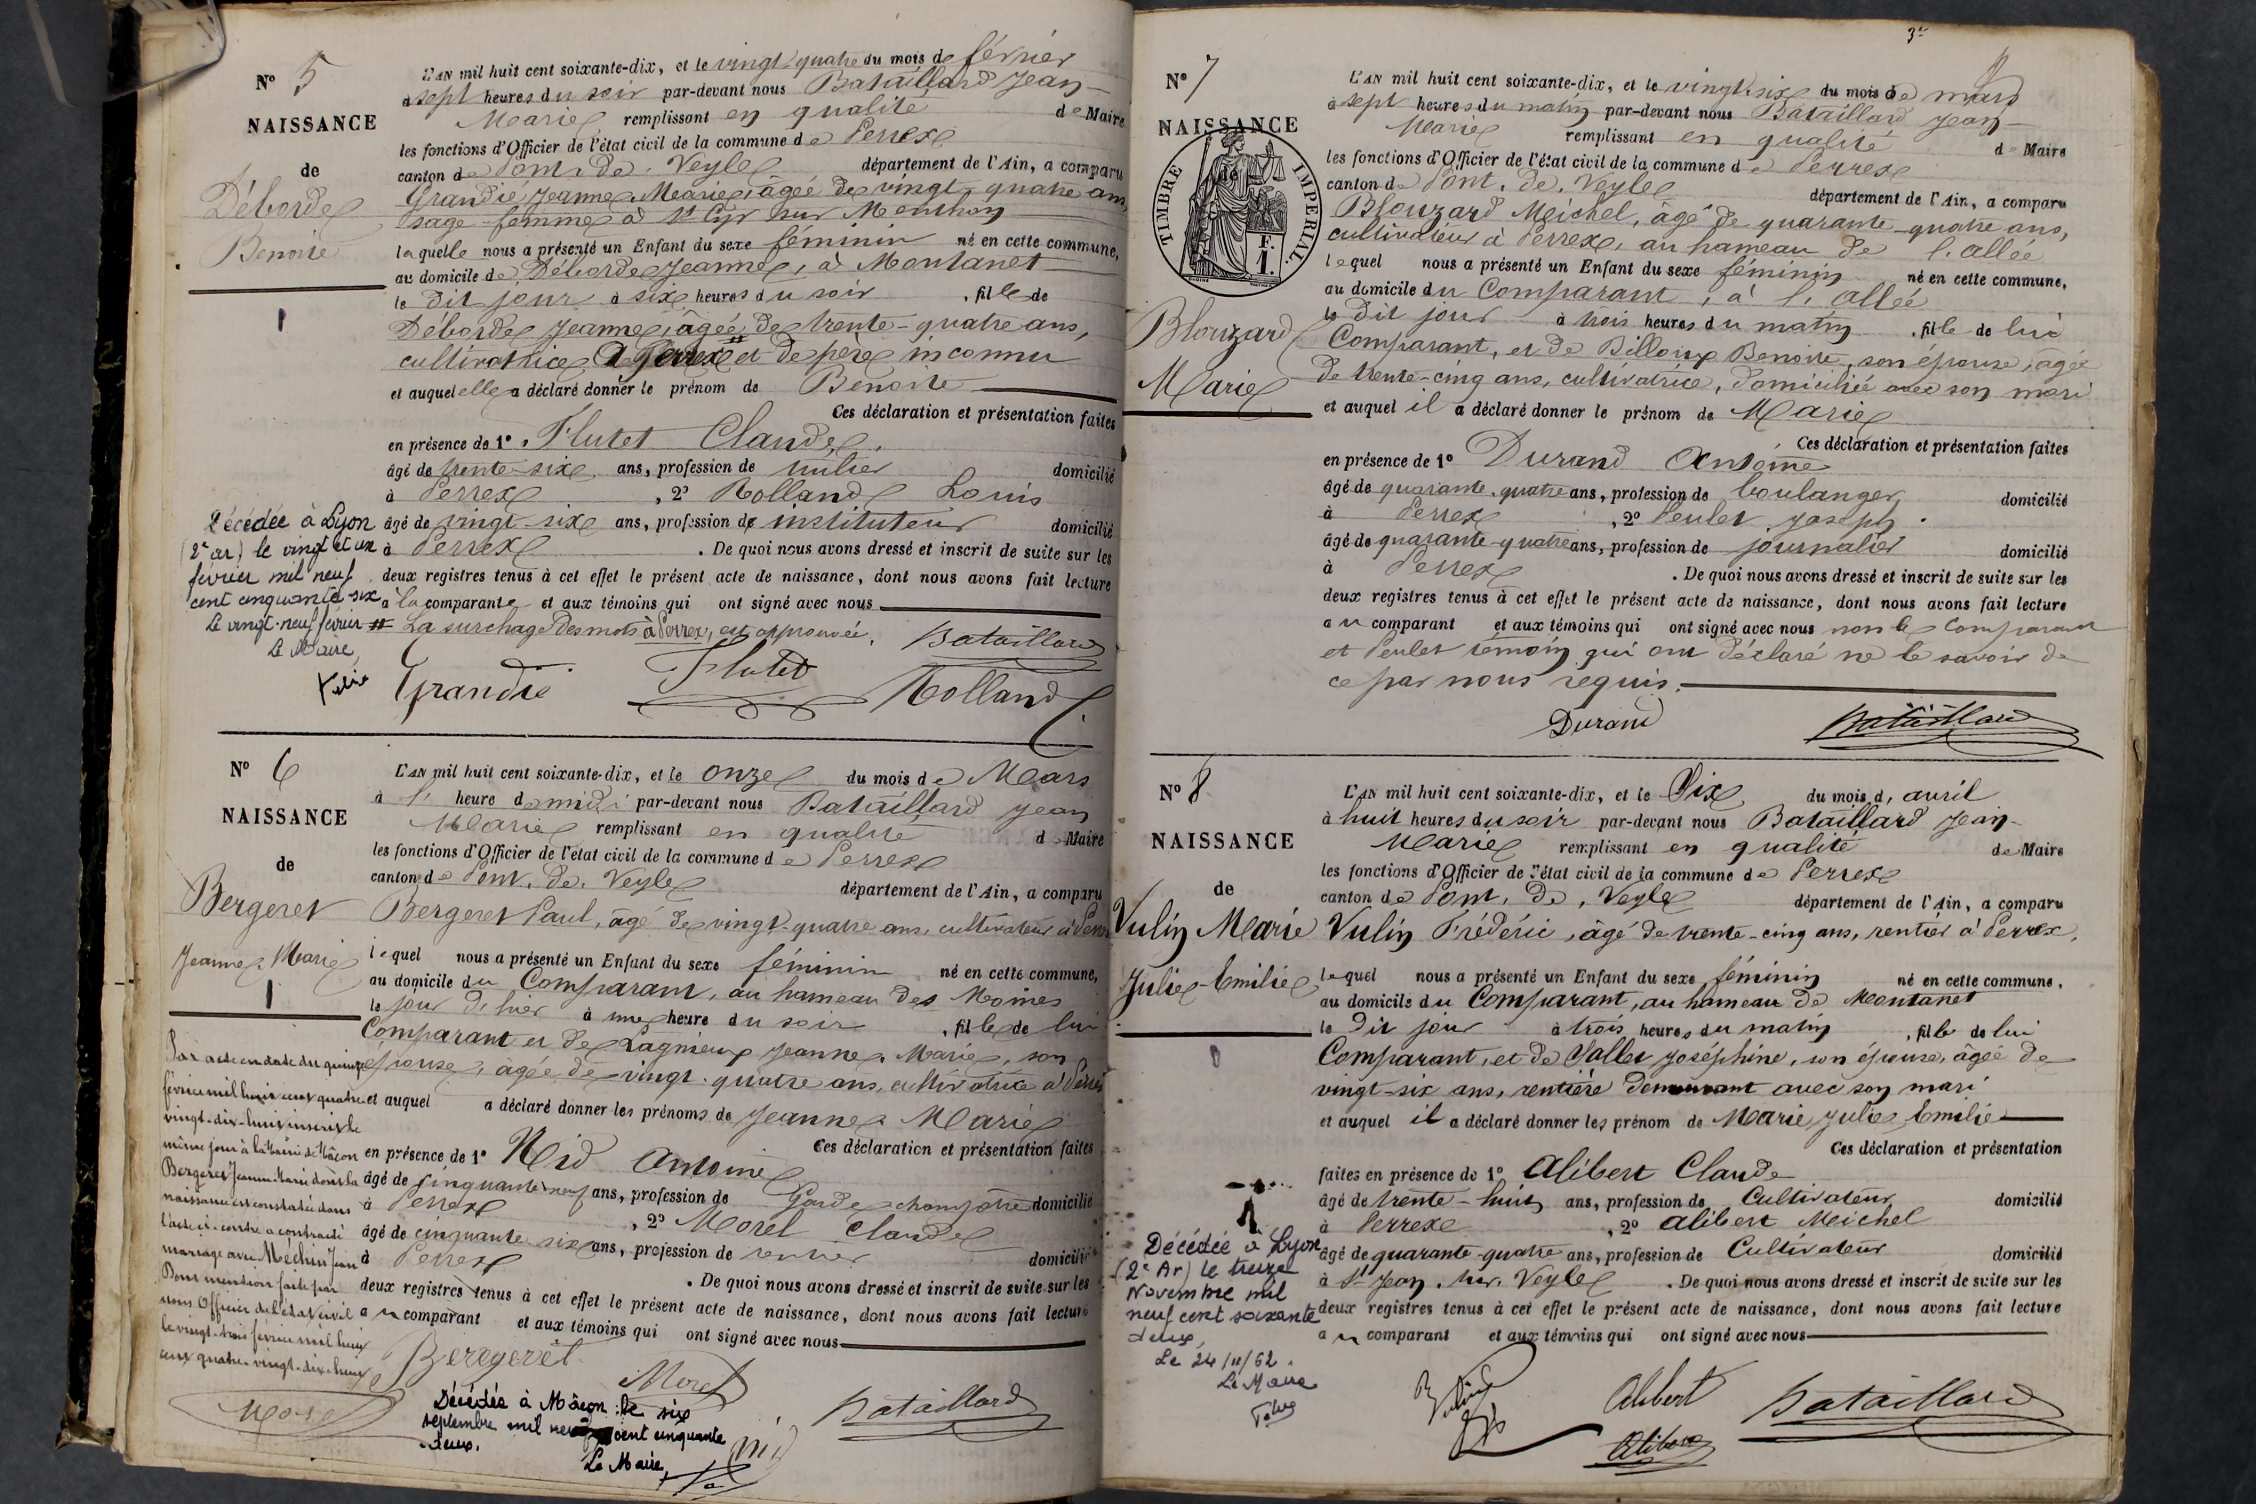 N° 5
NAISSANCE
de
Déborde
Benoite
L'AN mil huit cent soixante-dix, et le vingt-quatre du mois de février
à sept heures du soir par-devant nous Bataillard Jean-
Marie remplissant en qualité de Maire
les fonctions d'Officier de l'état civil de la commune de Perrex
canton de Pont-de-Veyle département de l'Ain, a comparu
Grandié Jeanne Marie, âgée de vingt-quatre ans,
sage-femme à St Cyr sur Menthon
laquelle nous a présenté un Enfant du sexe féminin né en cette commune,
au domicile de Déborde Jeanne, à Montanet
le dit jour à six heures du soir, fille de
Déborde Jeanne, âgée de trente-quatre ans,
cultivatrice à Perrex et de père inconnu
et auquel elle a déclaré donner le prénom de Benoite
Ces déclaration et présentation faites
en présence de 1° Flutet Claude,
âgé de trente-six ans, profession de domicilié
à Perrex, 2° Rolland Louis
âgé de vingt-six ans, profession de instituteur domicilié
à Perrex. De quoi nous avons dressé et inscrit de suite sur les
deux registres tenus à cet effet le présent acte de naissance, dont nous avons fait lecture
à la comparante et aux témoins qui ont signé avec nous
# La surchage des mots à Perrex, est approuvée. Bataillard
Grandié Flutet Rolland
Décédée à Lyon
(2e ar) le vingt et un
février mil neuf
cent cinquante six
Le vingt-neuf février
Le Maire,
N° 6
NAISSANCE
de
Bergeret
Jeanne-Marie
L'AN mil huit cent soixante-dix, et le onze du mois de Mars
à l' heure de midi par-devant nous Bataillard Jean
Marie remplissant en qualité de Maire
les fonctions d'Officier de l'état civil de la commune de Perrex
canton de Pont-de-Veyle département de l'Ain, a comparu
Bergeret Paul, âgé de vingt-quatre ans, cultivateur à Perrex
lequel nous a présenté un Enfant du sexe féminin né en cette commune,
au domicile du Comparant, au hameau des Moines
le jour d'hier à une heure du soir, fille de lui
Comparant et de Lagnieux Jeanne-Marie, son
épouse, âgée de vingt-quatre ans, cultivatrice à Perrex
et auquel a déclaré donner les prénoms de Jeanne-Marie
Ces déclaration et présentation faites
en présence de 1° Nid Antoine
âgé de cinquante-neuf ans, profession de Garde-champêtre domicilié
à Perrex, 2° Morel Claude
âgé de cinquante-six ans, profession de rentier domicilié
à Perrex. De quoi nous avons dressé et inscrit de suite sur les
deux registres tenus à cet effet le présent acte de naissance, dont nous avons fait lecture
au comparant et aux témoins qui ont signé avec nous
Bergeret Morel Bataillard
Nid
Par acte en date du quinze
février mil huit cent quatre
vingt-dix-huit inscrit le
même jour à la Mairie de Mâcon
Bergeret Jeanne-Marie dont la
naissance est constatée dans
l'acte ci-contre a contracté
mariage avec Méchin Jean
Dont mention faite par
nous Officier de l'état civil
le vingt-trois février mil huit
cent quatre-vingt-dix-huit
Morel
Décédée à Mâcon le six
septembre mil neuf cent cinquante
deux.
Le Maire,
3e
N° 7
NAISSANCE
de
TIMBRE IMPERIAL.
F.
1.
Blouzard
Marie
L'AN mil huit cent soixante-dix, et le vingt-six du mois de mars
à sept heures du matin par-devant nous Bataillard Jean-
Marie remplissant en qualité de Maire
les fonctions d'Officier de l'état civil de la commune de Perrex
canton de Pont-de-Veyle département de l'Ain, a comparu
Blouzard Michel, âgé de quarante-quatre ans,
cultivateur à Perrex, au hameau de l'allée
lequel nous a présenté un Enfant du sexe féminin né en cette commune,
au domicile du Comparant, à l'allée
le dit jour à trois heures du matin, fille de lui
Comparant, et de Billoux Benoite, son épouse, âgée
de trente-cinq ans, cultivatrice, domiciliée avec son mari
et auquel il a déclaré donner le prénom de Marie
Ces déclaration et présentation faites
en présence de 1° Durand Antoine
âgé de quarante-quatre ans, profession de boulanger domicilié
à Perrex, 2° Peulet Joseph.
âgé de quarante-quatre ans, profession de journalier domicilié
à Perrex. De quoi nous avons dressé et inscrit de suite sur les
deux registres tenus à cet effet le présent acte de naissance, dont nous avons fait lecture
au comparant et aux témoins qui ont signé avec nous non le Comparant
et Peulet témoin qui ont déclaré ne le savoir de
ce par nous requis.
Durand Bataillard
N° 8
NAISSANCE
de
Vulin Marie
Julie-Emilie
L'AN mil huit cent soixante-dix, et le Six du mois d'avril
à huit heures du soir par-devant nous Bataillard Jean-
Marie remplissant en qualité de Maire
les fonctions d'Officier de l'état civil de la commune de Perrex
canton de Pont-de-Veyle département de l'Ain, a comparu
Vulin Frédéric, âgé de trente-cinq ans, rentier à Perrex,
lequel nous a présenté un Enfant du sexe féminin né en cette commune,
au domicile du Comparant, au hameau de Montanet
le dit jour à trois heures du matin, fille de lui
Comparant, et de Sallet Joséphine, son épouse, âgée de
vingt-six ans, rentière demeurant avec son mari
et auquel il a déclaré donner les prénom de Marie Julie Emilie
Ces déclaration et présentation
faites en présence de 1° Alibert Claude
âgé de trente-huit ans, profession de Cultivateur domicilié
à Perrex, 2° Alibert Michel
âgé de quarante-quatre ans, profession de Cultivateur domicilié
à St Jean-sur-Veyle. De quoi nous avons dressé et inscrit de suite sur les
deux registres tenus à cet effet le présent acte de naissance, dont nous avons fait lecture
au comparant et aux témoins qui ont signé avec nous
Alibert Bataillard
Alibert
Décédée à Lyon
(2e Ar) le treize
Novembre mil
neuf cent soixante
deux,
Le 24/11/62.
Le Maire